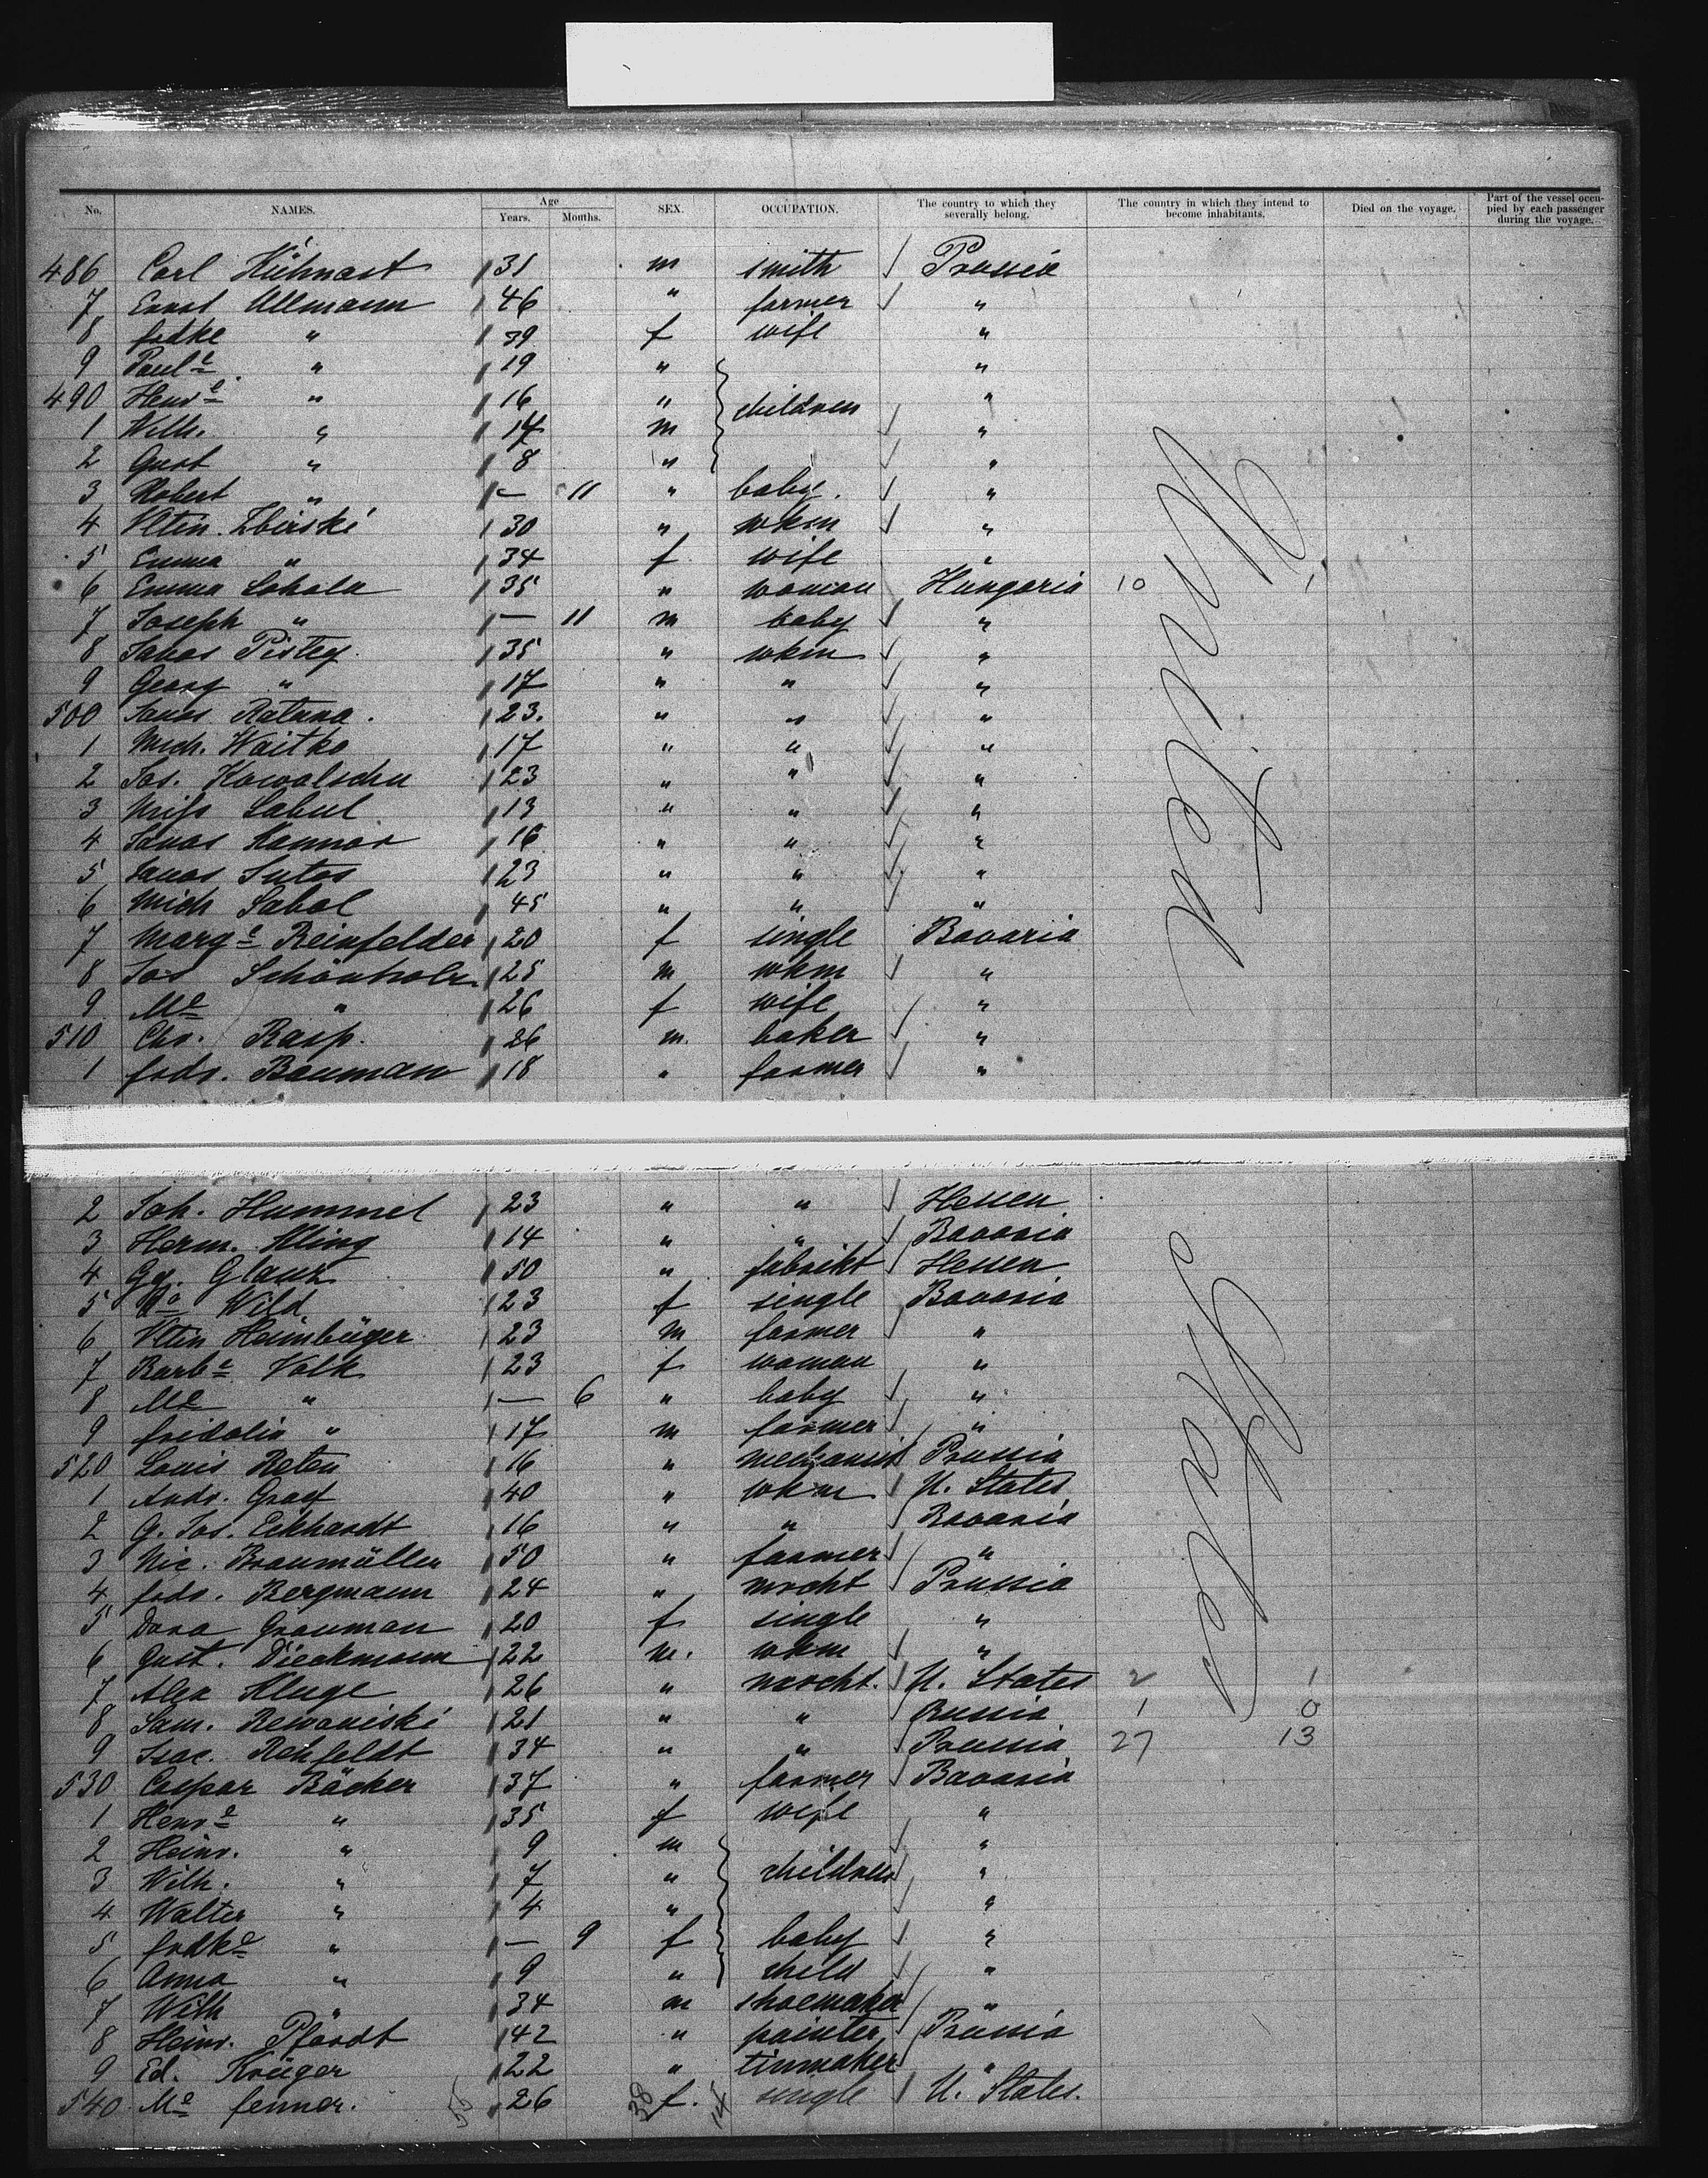 No. NAMES. Age Years. Months. SEX. OCCUPATION. The country to which they severally belong. The country in which they intend to become inhabitants. Died on the voyage. Part of the vessel occupied by each passenger during the voyage.
486 Carl Hühnast 31 m smith Prussia
7 Ernst Ullmann 46 " farmer "
8 Fridke " 39 f wife "
9 Paul<u>e</u> " 19 " "
490 Henr<u>e</u> " 16 " children "
1 Wilh. " 14 m "
2 Gust " 8 " "
3 Robert " — 11 " baby. "
4 Vltin. Zbirski 30 " wkm "
5 Emma " 34 f wife "
6 Emma Lohola 35 " woman Hungaria 10 1
7 Joseph " — 11 m baby "
8 Janos Pistey 35 " wkm "
9 Georg " 17 " " "
500 Janos Ratana. 23. " " "
1 Mich. Waitko 17 " " "
2 Jos. Kowalschu 23 " " "
3 Labul 13 " " "
4 Janos Kamnar 16 " " "
5 Janos Sutos 23 " " "
6 Mich Sabol 45 " " "
7 Marg<u>e</u> Reinfelder 20 f single Bavaria
8 Jos Schönholz 25 m wkm "
9 M<u>e</u> " 26 f wife "
510 Chr. Rasp. 26 m. baker "
1 Frdr. Bauman 18 " farmer "
United
2 Joh. Hummel 23 " " Hessen
3 Herm. Kling 14 " " Bavaria
4 Gg. Glanz 50 " fabrikt Hessen
5 Wild 23 f single Bavaria
6 Vltin Heimbüger 23 m farmer "
7 Barb<u>e</u> Volk 23 f woman "
8 M<u>e</u> " — 6 " baby "
9 Fridolin " 17 m farmer "
520 Louis Reten 16 " mechanist Prussia
1 Andr. Graf 40 " wkm U. States
2 G. Jos. Eckhardt 16 " " Bavaria
3 Nic. Braumüller 50 " farmer "
4 Frdr. Bergmann 24 " mrcht Prussia
5 Dora Grauman 20 f single "
6 Gust. Dieckmann 22 m. wkm "
7 Alex Kluge 26 " mrcht. U. States 2 1
8 Sam. Rewaniski 21 " " Russia 1 0
9 Isac. Rehfeldt 34 " " Prussia 27 13
530 Caspar Bäcker 37 " farmer Bavaria
1 Henr<u>e</u> " 35 f wife "
2 Heinr. " 9 m "
3 Wilh. " 7 " children "
4 Walter " 4 " "
5 Frdk<u>e</u> " — 9 f baby "
6 Anna " 9 " child "
7 Wilh " 34 m shoemaker "
8 Heinr. Pfardt 42 " painter Prussia
9 Ed. Krüger 22 " tinmaker "
540 M<u>e</u> Fenner. 55 26 38 f. 14 single U. States.
States